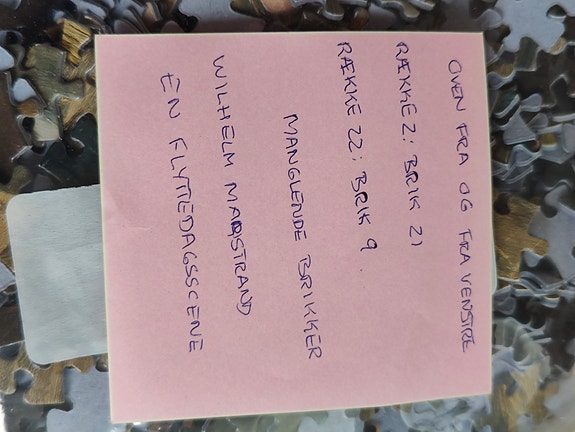 OVEN FRA OG FRA VENSTRE
RÆKKE 2: BRIK 21
RÆKKE 22: BRIK 9.
MANGLENDE BRIKKER
WILHELM MARSTRAND
EN FLYTTEDAGSSCENE